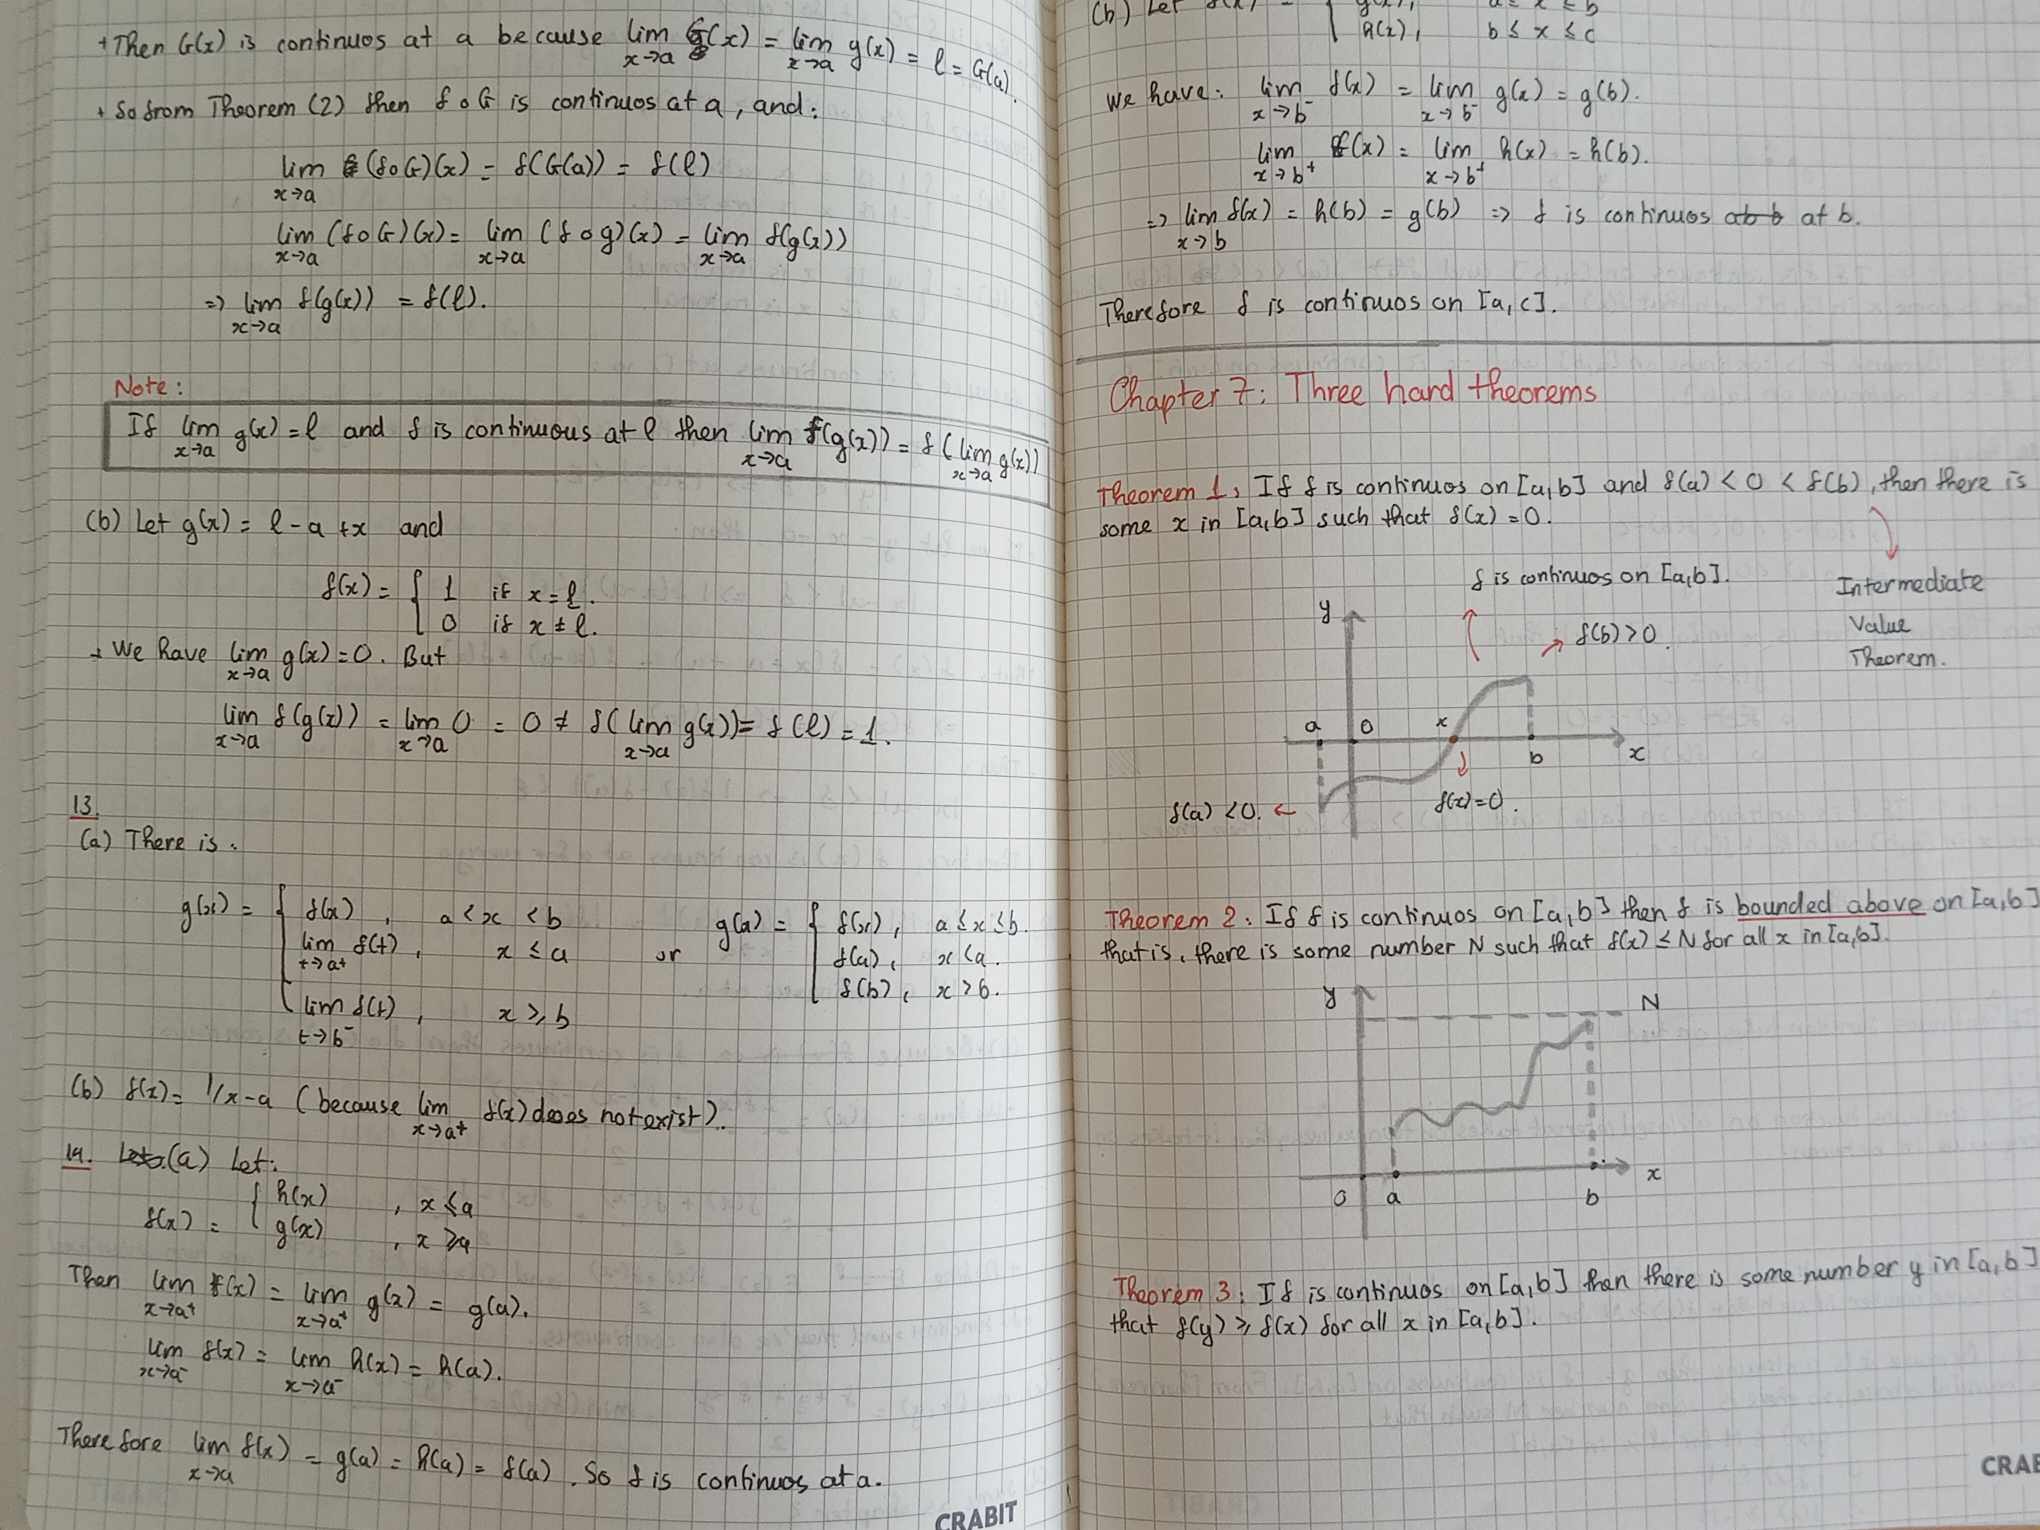 + Then G(x) is continuos at a because lim x→a G(x) = lim x→a g(x) = l = G(a).
+ So from Theorem (2) then f o G is continuos at a, and:
lim x→a (f o G)(x) = f(G(a)) = f(l)
lim x→a (f o G)(x) = lim x→a (f o g)(x) = lim x→a f(g(x))
=> lim x→a f(g(x)) = f(l).
Note:
If lim x→a g(x) = l and f is continuous at l then lim x→a f(g(x)) = f(lim x→a g(x))
(b) Let g(x) = l - a + x and
f(x) = { 1 if x = l.
0 if x ≠ l.
+ We have lim x→a g(x) = 0. But
lim x→a f(g(x)) = lim x→a 0 = 0 ≠ f(lim x→a g(x)) = f(l) = 1.
13.
(a) There is:
g(x) = { f(x), a < x < b
lim t→a+ f(t), x ≤ a
lim t→b- f(t), x ≥ b
or
g(x) = { f(x), a ≤ x ≤ b.
f(a), x < a.
f(b), x > b.
(b) f(x) = 1/x-a (because lim x→a+ f(x) does not exist).
14. (a) Let:
f(x) = { h(x), x ≤ a
g(x), x ≥ a
Then lim x→a+ f(x) = lim x→a+ g(x) = g(a).
lim x→a- f(x) = lim x→a- h(x) = h(a).
Therefore lim x→a f(x) = g(a) = h(a) = f(a). So f is continuos at a.
CRABIT
(b) Let f(x) = { g(x), a ≤ x ≤ b
h(x), b ≤ x ≤ c
We have: lim x→b- f(x) = lim x→b- g(x) = g(b).
lim x→b+ f(x) = lim x→b+ h(x) = h(b).
=> lim x→b f(x) = h(b) = g(b) => f is continuos at b.
Therefore f is continuos on [a,c].
Chapter 7: Three hard theorems
Theorem 1: If f is continuos on [a,b] and f(a) < 0 < f(b), then there is
some x in [a,b] such that f(x) = 0.
f is continuos on [a,b].
Intermediate
Value
Theorem.
y
f(b) > 0.
a
0
x
b
x
f(a) < 0.
f(x) = 0.
Theorem 2: If f is continuos on [a,b] then f is bounded above on [a,b]
that is, there is some number N such that f(x) ≤ N for all x in [a,b].
y
N
x
0
a
b
Theorem 3: If f is continuos on [a,b] then there is some number y in [a,b]
that f(y) ≥ f(x) for all x in [a,b].
CRAB